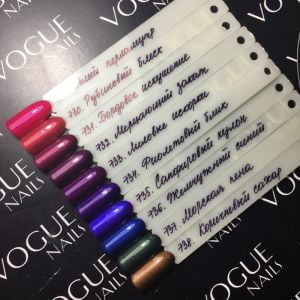 VOGUE
NAILS
перламутр
730. Рубиновый блеск
731. Бордовое искушение
732. Мерцающий закат
733. Лиловые искорки
734. Фиолетовый блик
735. Сапфировый купон
736. Жемчужный синий
737. Морская пена
738. Коричневый сахар
VOGUE
NAILS
VOGUE
NAILS